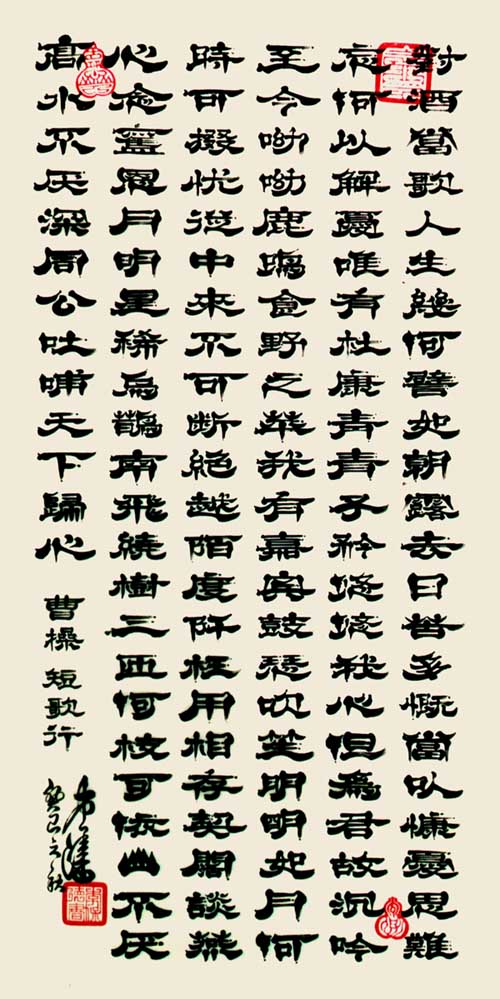 對酒當歌人生幾何譬如朝露去日苦多慨當以慷憂思難
忘何以解憂唯有杜康青青子衿悠悠我心但為君故沉吟
至今呦呦鹿鳴食野之苹我有嘉賓鼓瑟吹笙明明如月何
時可掇忧從中來不可断絶越陌度阡枉用相存契闊談燕
心念舊恩月明星稀烏鵲南飛繞樹三匝何枝可依山不厌
高水不厌深周公吐哺天下歸心 曹操 短歌行